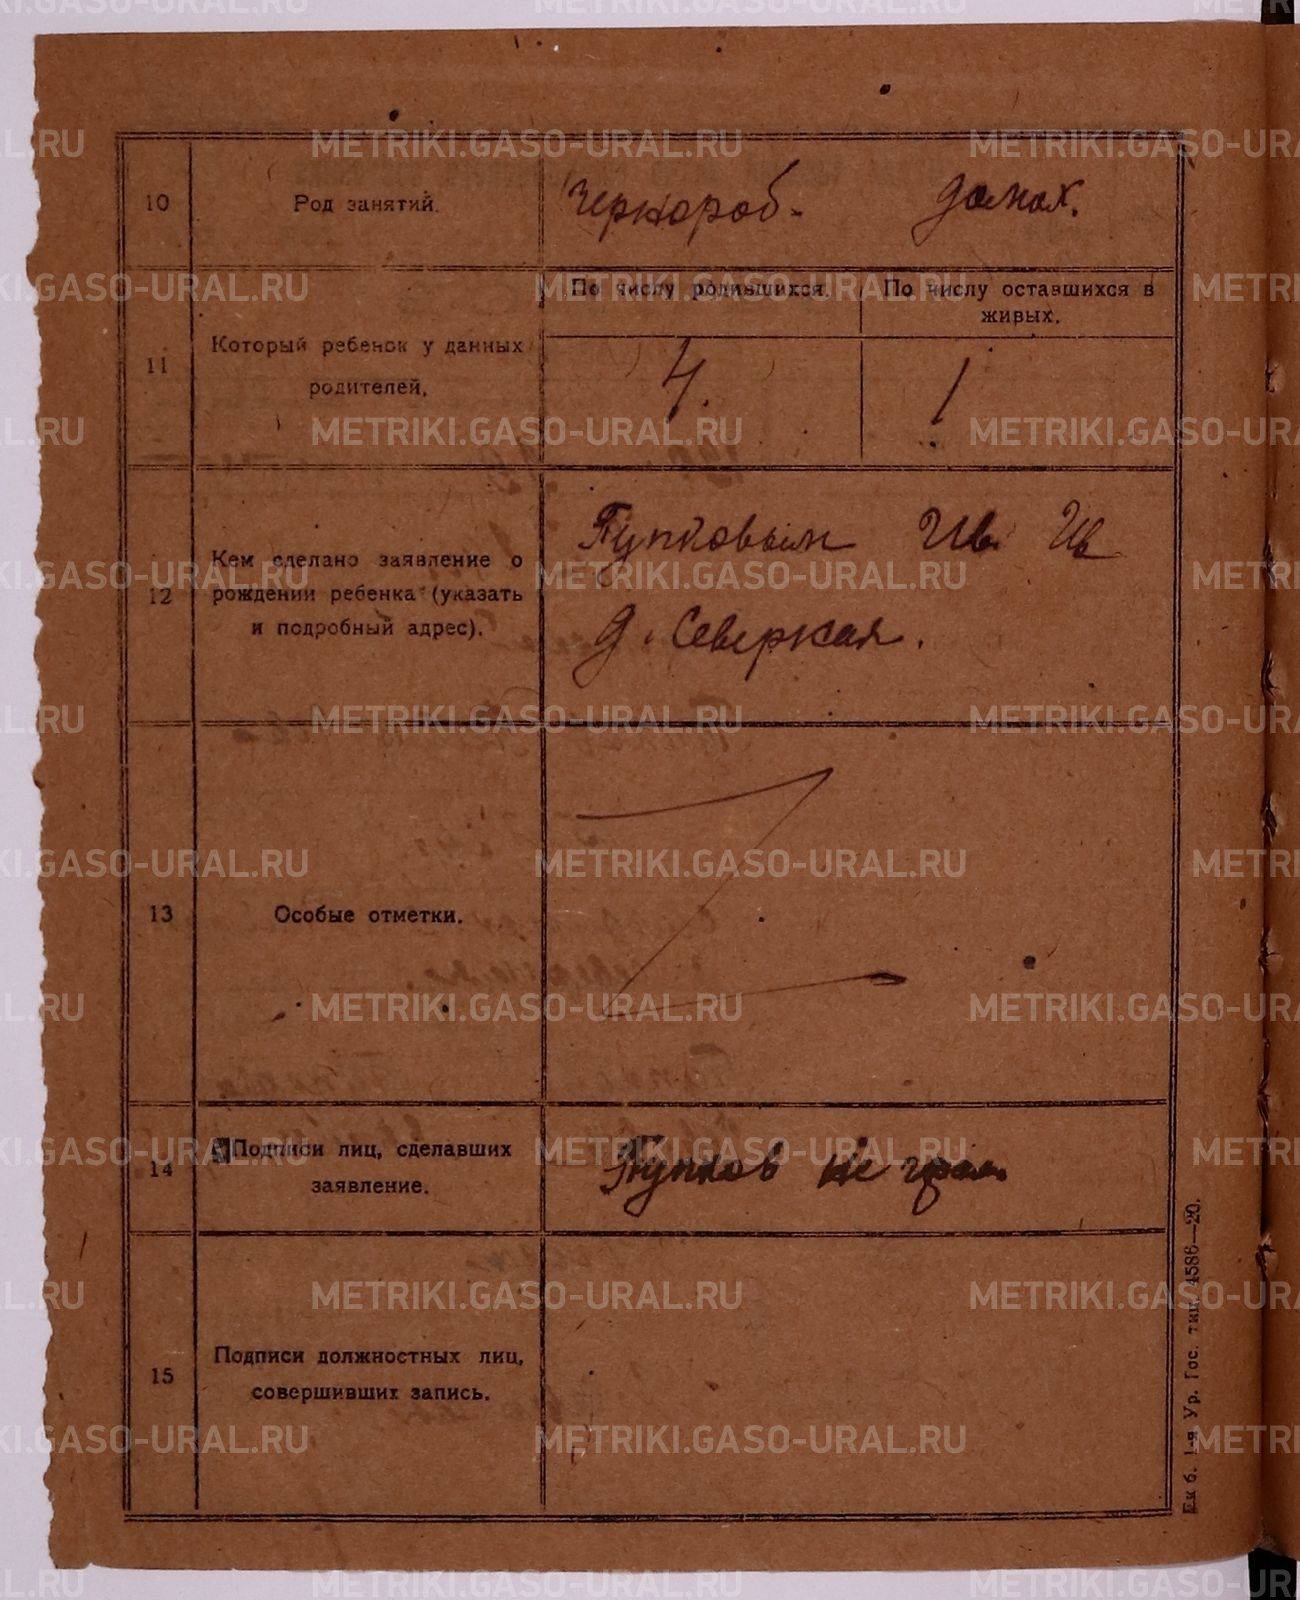 10
Род занятий.
чернораб. домах.
11
Который ребенок у данных
родителей.
По числу родившихся.
По числу оставшихся в
живых.
4.
1
12
Кем сделано заявление о
рождении ребенка (указать
и подробный адрес).
Пупковым Ив. Ив
д. Северская.
13
Особые отметки.
14
Подписи лиц, сделавших
заявление.
Пупков не грам.
15
Подписи должностных лиц,
совершивших запись.
Ек б. 1-я Ур. Гос. тип. 4586—20.
METRIKI.GASO-URAL.RU